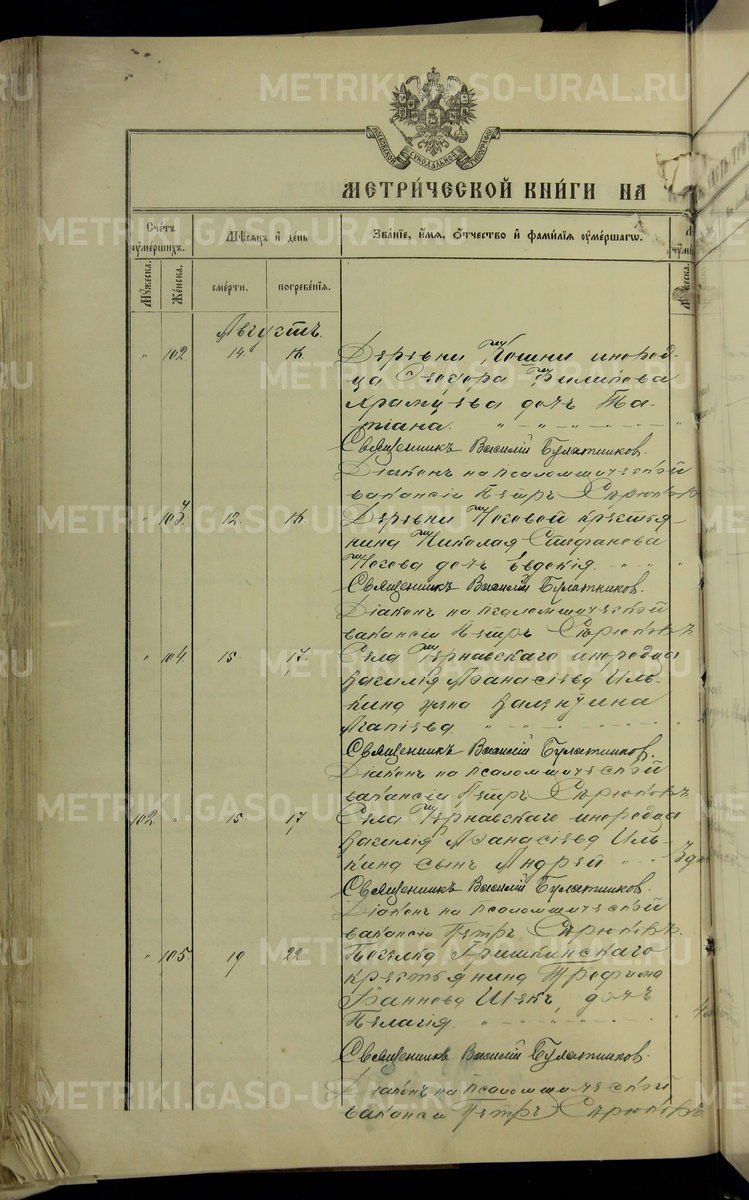 METRIKI.GASO-URAL.RU
МОСКОВСКОЙ СѴНОДАЛЬНОЙ ТИПОГРАФІИ
МЕТРИ́ЧЕСКОЙ КНИ́ГИ НА
Сче́тъ оуме́ршихъ.
Мѣ́сяцъ и де́нь
Зва́ніе, и́мя, о́тчество и фами́лія оуме́ршагѡ.
Мꙋ́жеска.
Же́нска.
сме́рти.
погребе́нія.
Августъ.
" 102. 14. 16. Деревни Кошки инород-
ца Ѳеодора Филипова
дочь Та-
тіана.
Священникъ Василій Булатниковъ.
Діаконъ на псаломщической
вакансіи Петръ Серюковъ
" 103. 12. 16. Деревни Носовой крестья-
нина Николая Стефанова
Носова дочь Евдокія.
Священникъ Василій Булатниковъ.
Діаконъ на псаломщической
вакансіи Петръ Серюковъ
" 104. 15. 17. Села инородца
Василія Аѳанасіева Иль-
кина жена Валентина
Агапіева.
Священникъ Василій Булатниковъ.
Діаконъ на псаломщической
вакансіи Петръ Серюковъ
102. " 15 17 Села инородца
Василія Аѳанасіева Иль-
кина сынъ Андрей
Священникъ Василій Булатниковъ.
Діаконъ на псаломщической
вакансіи Петръ Серюковъ.
" 105. 19 22. Поселка Гришкинскаго
крестьянина Трофима
Іоаннова дочь
Пелагія.
Священникъ Василій Булатниковъ.
Діаконъ на псаломщической
вакансіи Петръ Серюковъ